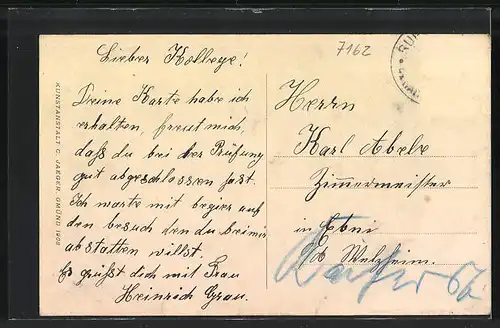 Lieber Kollege!
Deine Karte habe ich
erhalten, freut mich,
daß du bei der Prüfung
gut abgeschlossen hast.
Ich warte mit begier auf
den besuch den du bei mir
abstatten willst.
Es grüßt dich mit Frau
Heinrich Grau.
7162
Herrn
Karl Abele
Zimmermeister
in Ebni
Welzheim.
KUNSTANSTALT C. JAEGER, GMÜND 1909